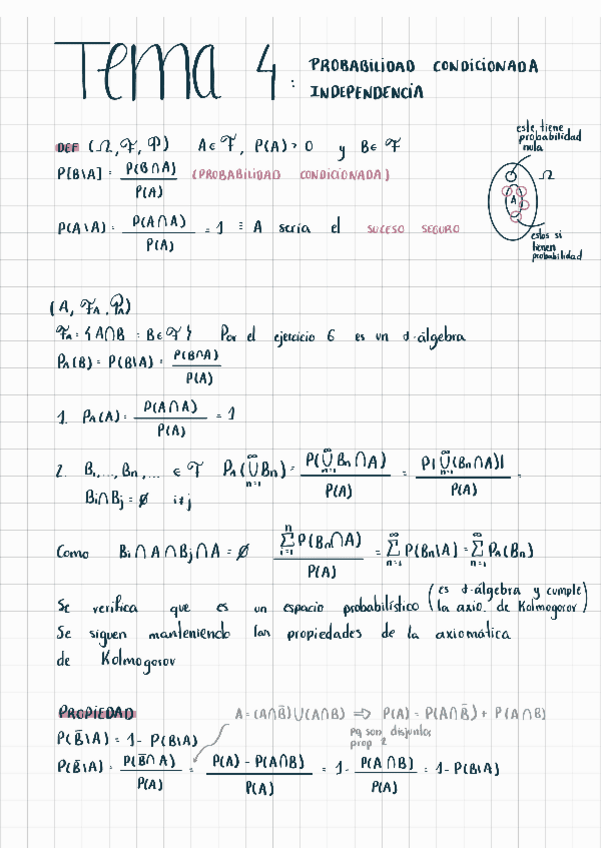 Tema 4: PROBABILIDAD CONDICIONADA
INDEPENDENCIA
este tiene
probabilidad
nula
DEF (Ω, F, P) A∈F, P(A)>0 y B∈F
P(B\A) = P(B∩A)/P(A) (PROBABILIDAD CONDICIONADA)
Ω
A
P(A\A) = P(A∩A)/P(A) = 1 ≡ A sería el SUCESO SEGURO
estos si
tienen
probabilidad
(A, F_A, P_A)
F_A = {A∩B : B∈F} Por el ejercicio 6 es un σ-álgebra
P_A(B) = P(B\A) = P(B∩A)/P(A)
1. P_A(A) = P(A∩A)/P(A) = 1
2. B₁,...,Bn,... ∈ F P_A(⋃_{n=1}^∞ Bn) = P(⋃_{n=1}^∞ Bn∩A)/P(A) = P(⋃_{n=1}^∞ (Bn∩A))/P(A) =
Bi∩Bj = ∅ i≠j
Como Bi∩A∩Bj∩A = ∅ ∑_{i=1}^n P(Bn∩A)/P(A) = ∑_{n=1}^∞ P(Bn\A) = ∑_{n=1}^∞ P_A(Bn)
Se verifica que es un espacio probabilístico (es σ-álgebra y cumple la axio. de Kolmogorov)
Se siguen manteniendo las propiedades de la axiomática
de Kolmogorov
PROPIEDAD A = (A∩B̄)∪(A∩B) ⇒ P(A) = P(A∩B̄) + P(A∩B)
pq son disjuntos
prop 2
P(B̄\A) = 1 - P(B\A)
P(B̄\A) = P(B̄∩A)/P(A) = P(A) - P(A∩B)/P(A) = 1 - P(A∩B)/P(A) = 1 - P(B\A)